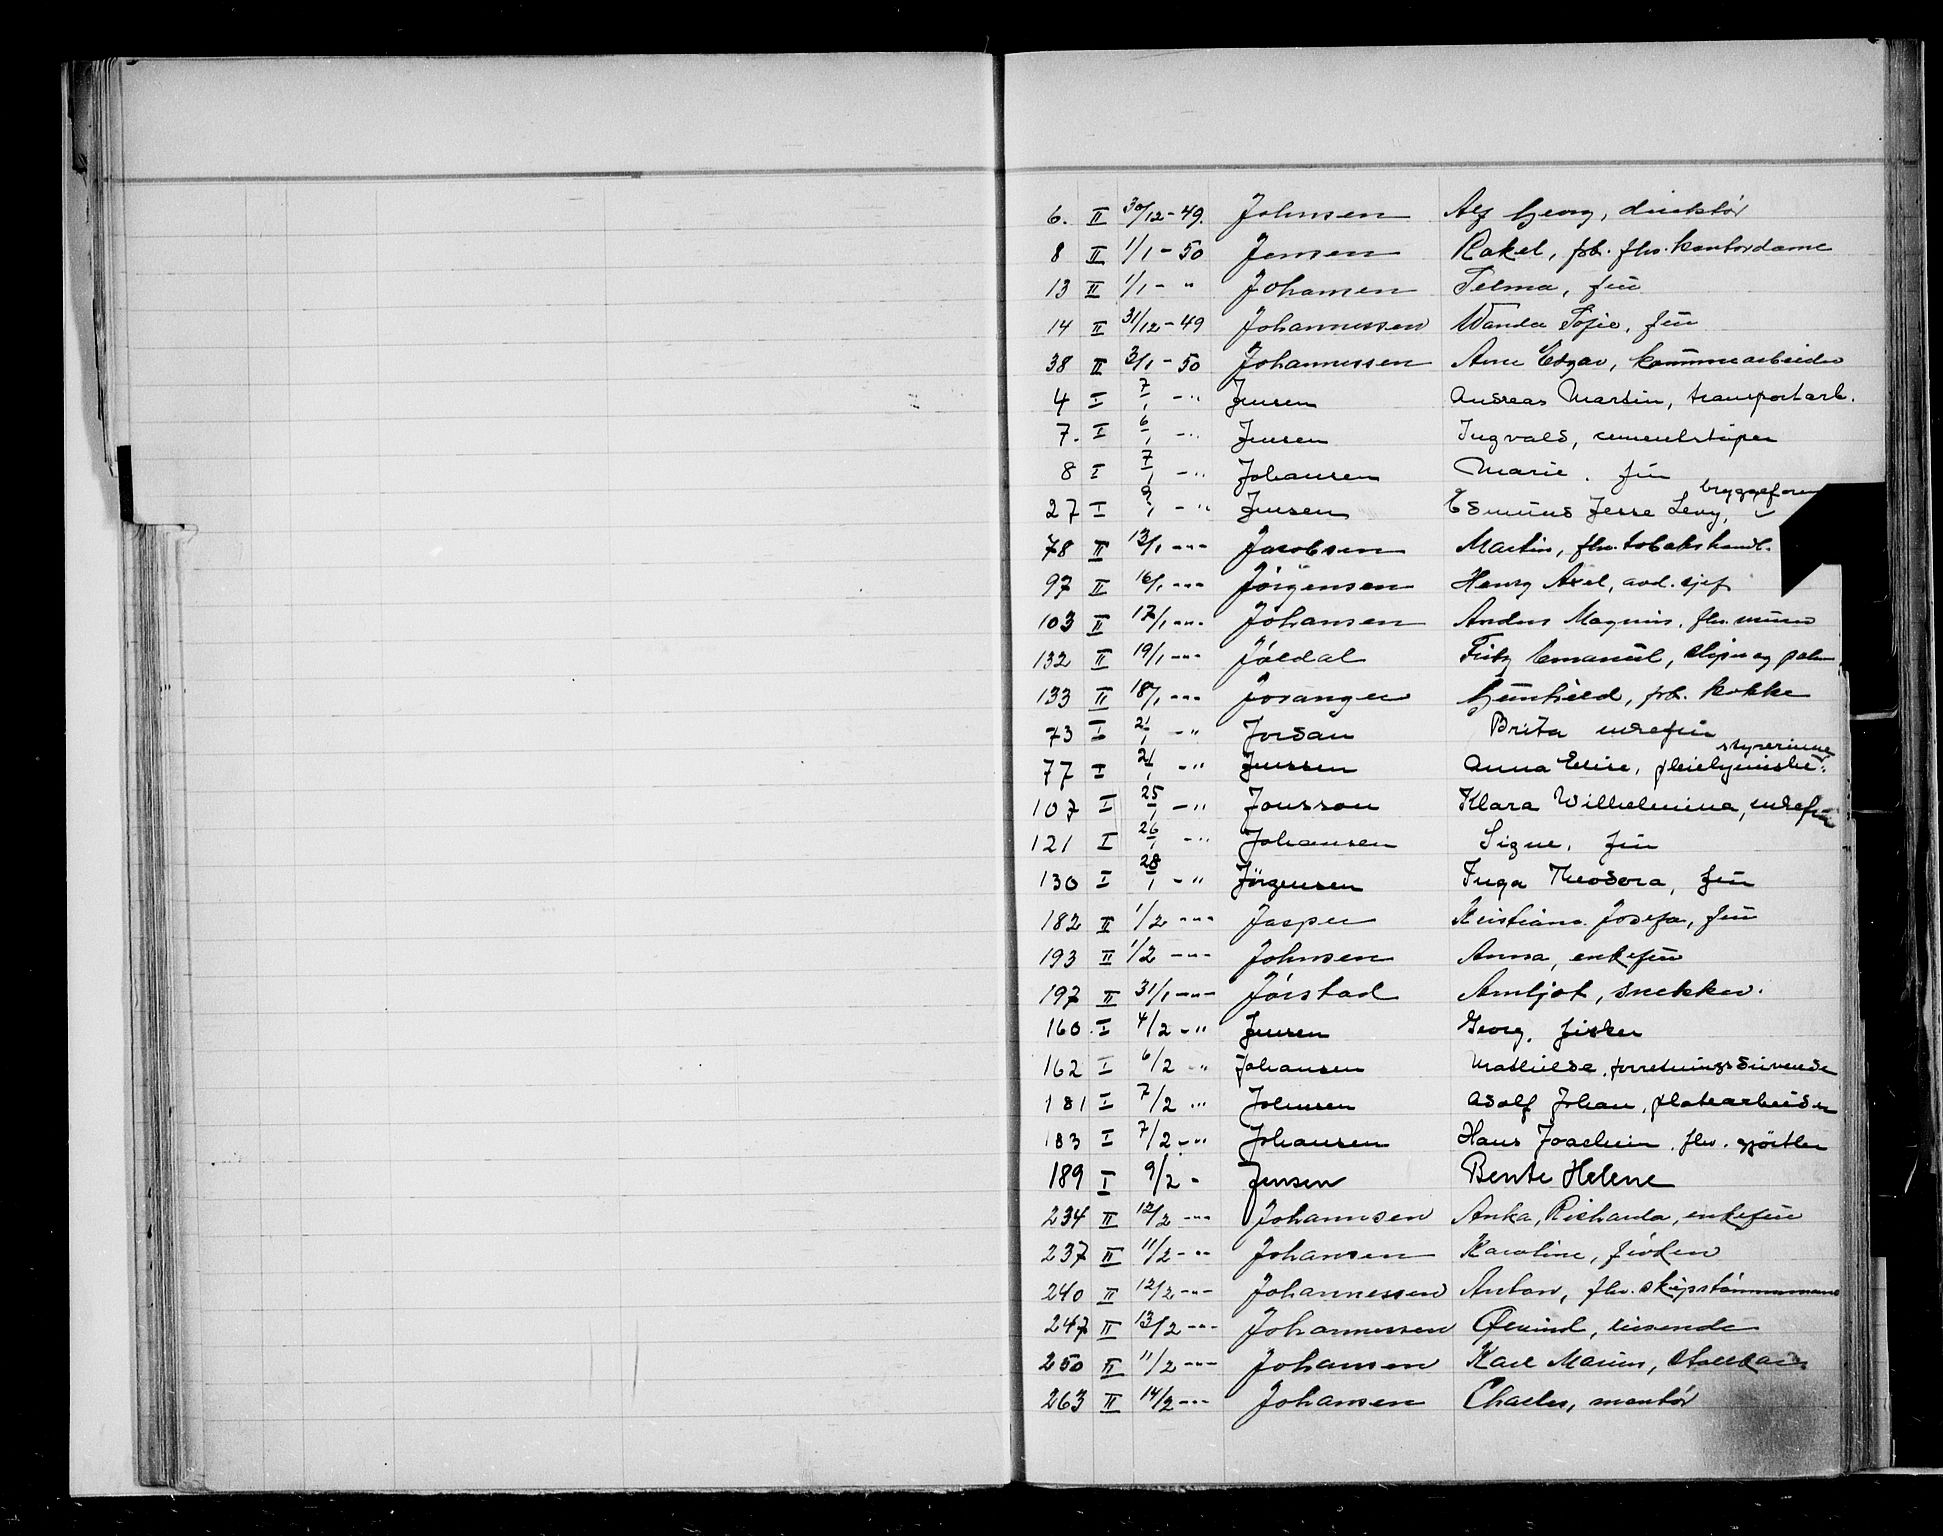 6. II 30/12-49. Johnsen Alf Georg, direktör
8 II 1/1 - 50 Jensen Rakel, frk. fhv. kontordame
13 II 1/1 - " Johansen Telma, frū
14 II 31/12-49 Johannessen Wanda Sofie, frū
38 II 3/1 - 50 Johannessen Arne Edgar, kommunearbeider
4 I 7/1 - " Jensen Andreas Martin, transportarb.
7. I 6/1 - " Jensen Ingvald, cementstöper
8 I 7/1 - " Johansen Marie, frū
27 I 9/1 - " Jensen Edmūnd Jesse Levy, bryggeform
78 II 13/1 - " - Jacobsen Martin, fhv. tobakshandl.
97 II 16/1 - " - Jörgensen Henry Axel, avd. sjef
103 II 17/1 - " - Johansen Anders Magnus, fhv. mūrer
132 II 19/1 - " - Jöldal Fritz Emanūel, sliper og poler
133 II 18/1 - " - Josangen Gūnhild, frk. kokke
73 I 21/1 - " Jordan Brita enkefrū
77 I 21/1 - " Janssen Anna Elise, styrerinne pleiehjemsbe.
107 I 25/1 - " Jonsson Klara Wilhelmina, enkefrū
121 I 26/1 - " Johansen Signe, frū
130 I 28/1 - " Jörgensen Inga Theodora, frū
182 II 1/2 - " - Jasper Kristiane Josefa, frū
193 II 1/2 - " - Johnsen Anna, enkefrū
197 II 31/1 - " - Jörstad Arnljot, snekker.
160. I 4/2 - " Jensen Georg, fisker
162 I 6/2 " Johansen Mathilde, forretningsdrivende
181 I 7/2 " Johnsen Adolf Johan, platearbeider
183 I 7/2 - " Johansen Hans Joachim, fhv. gjörtler
189 I 9/2 - Jensen Bente Helene
234 II 12/2 - " - Johannsen Anka, Richarda, enkefrū
237 II 11/2 - " Johansen Karoline, fröken
240 II 12/2 - " - Johannessen Anton, fhv. skipstömmermann
247 II 13/2 - " - Johannessen Øivind, reisende
250 II 11/2 - " - Johansen Karl Marius,
263 II 14/2 - " - Johansen Charles, montör